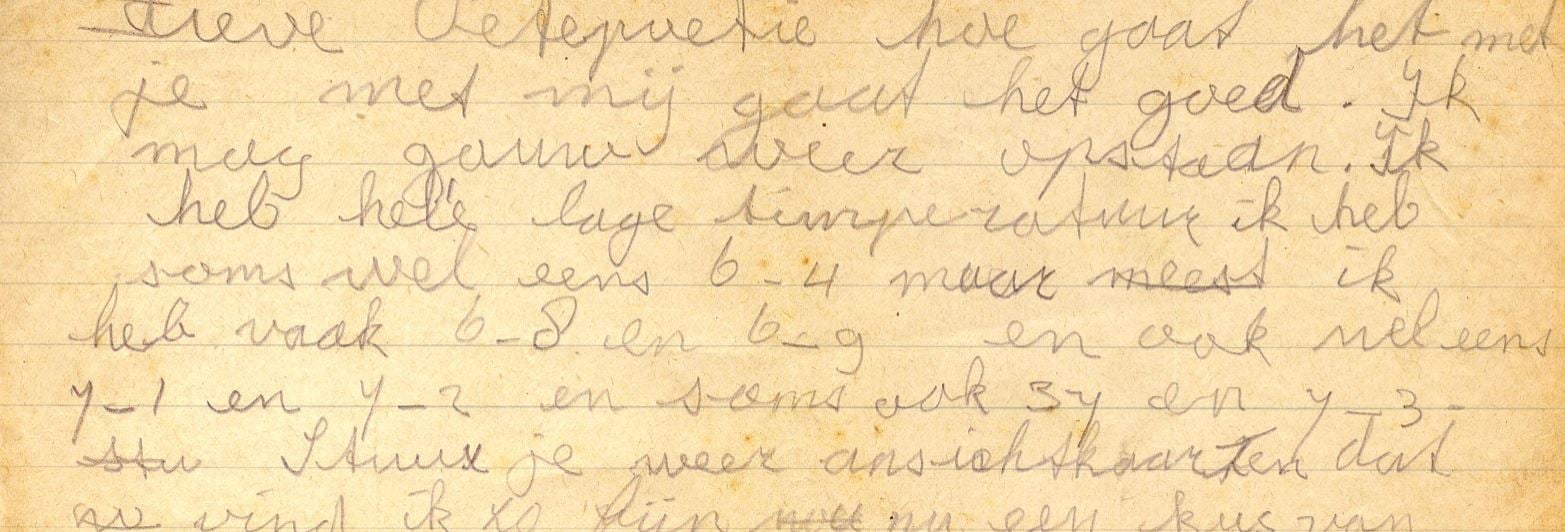 Lieve Oetepoetie hoe gaat het met
je met mij gaat het goed. Ik
mag gauw weer opstaan. Ik
heb hele lage timperatuur ik heb
soms wel eens 6-4 maar meest ik
heb vaak 6-8 en 6-9 en ook wel eens
7-1 en 7-2 en soms ook 37 en 7-3-
stu Stuux je weer ansichtkaarten dat
vind ik zo fijn nu een kus van